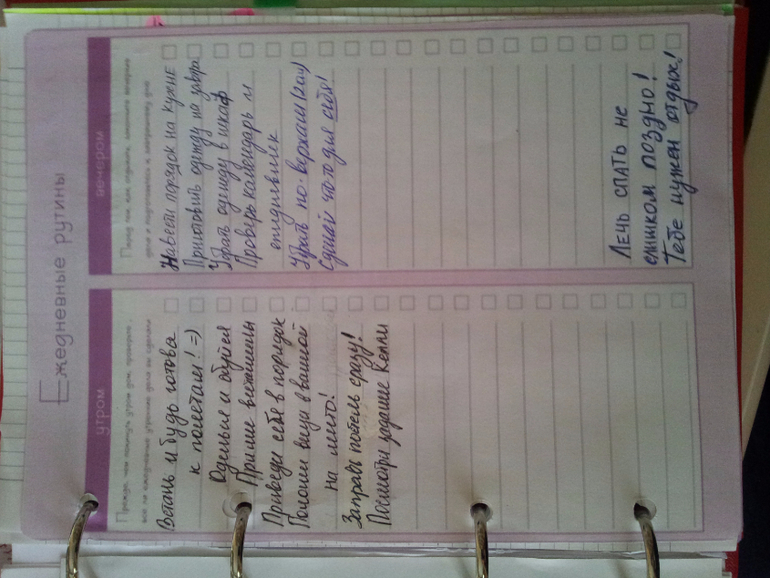 Ежедневные рутины
утром
Прежде, чем покинуть утром дом, проверьте,
все ли ежедневные утренние дела вы сделали
Встань и будь готова
к полетам! =)
Оденься и обуйся
Прими витамины
Приведи себя в порядок
Положи вещи в ванной
на место!
Заправь постель сразу!
Посмотри задание Келли
вечером
Перед тем, как отдыхать, закончите вечерние
дела и подготовьтесь к завтрашнему дню
Навести порядок на кухне
Приготовить одежду на завтра
Убрать одежду в шкаф
Проверь календарь и
ежедневник
Убрать по верхам (2 )
Сделай что-то для себя!
Лечь спать не
слишком поздно!
Тебе нужен отдых!